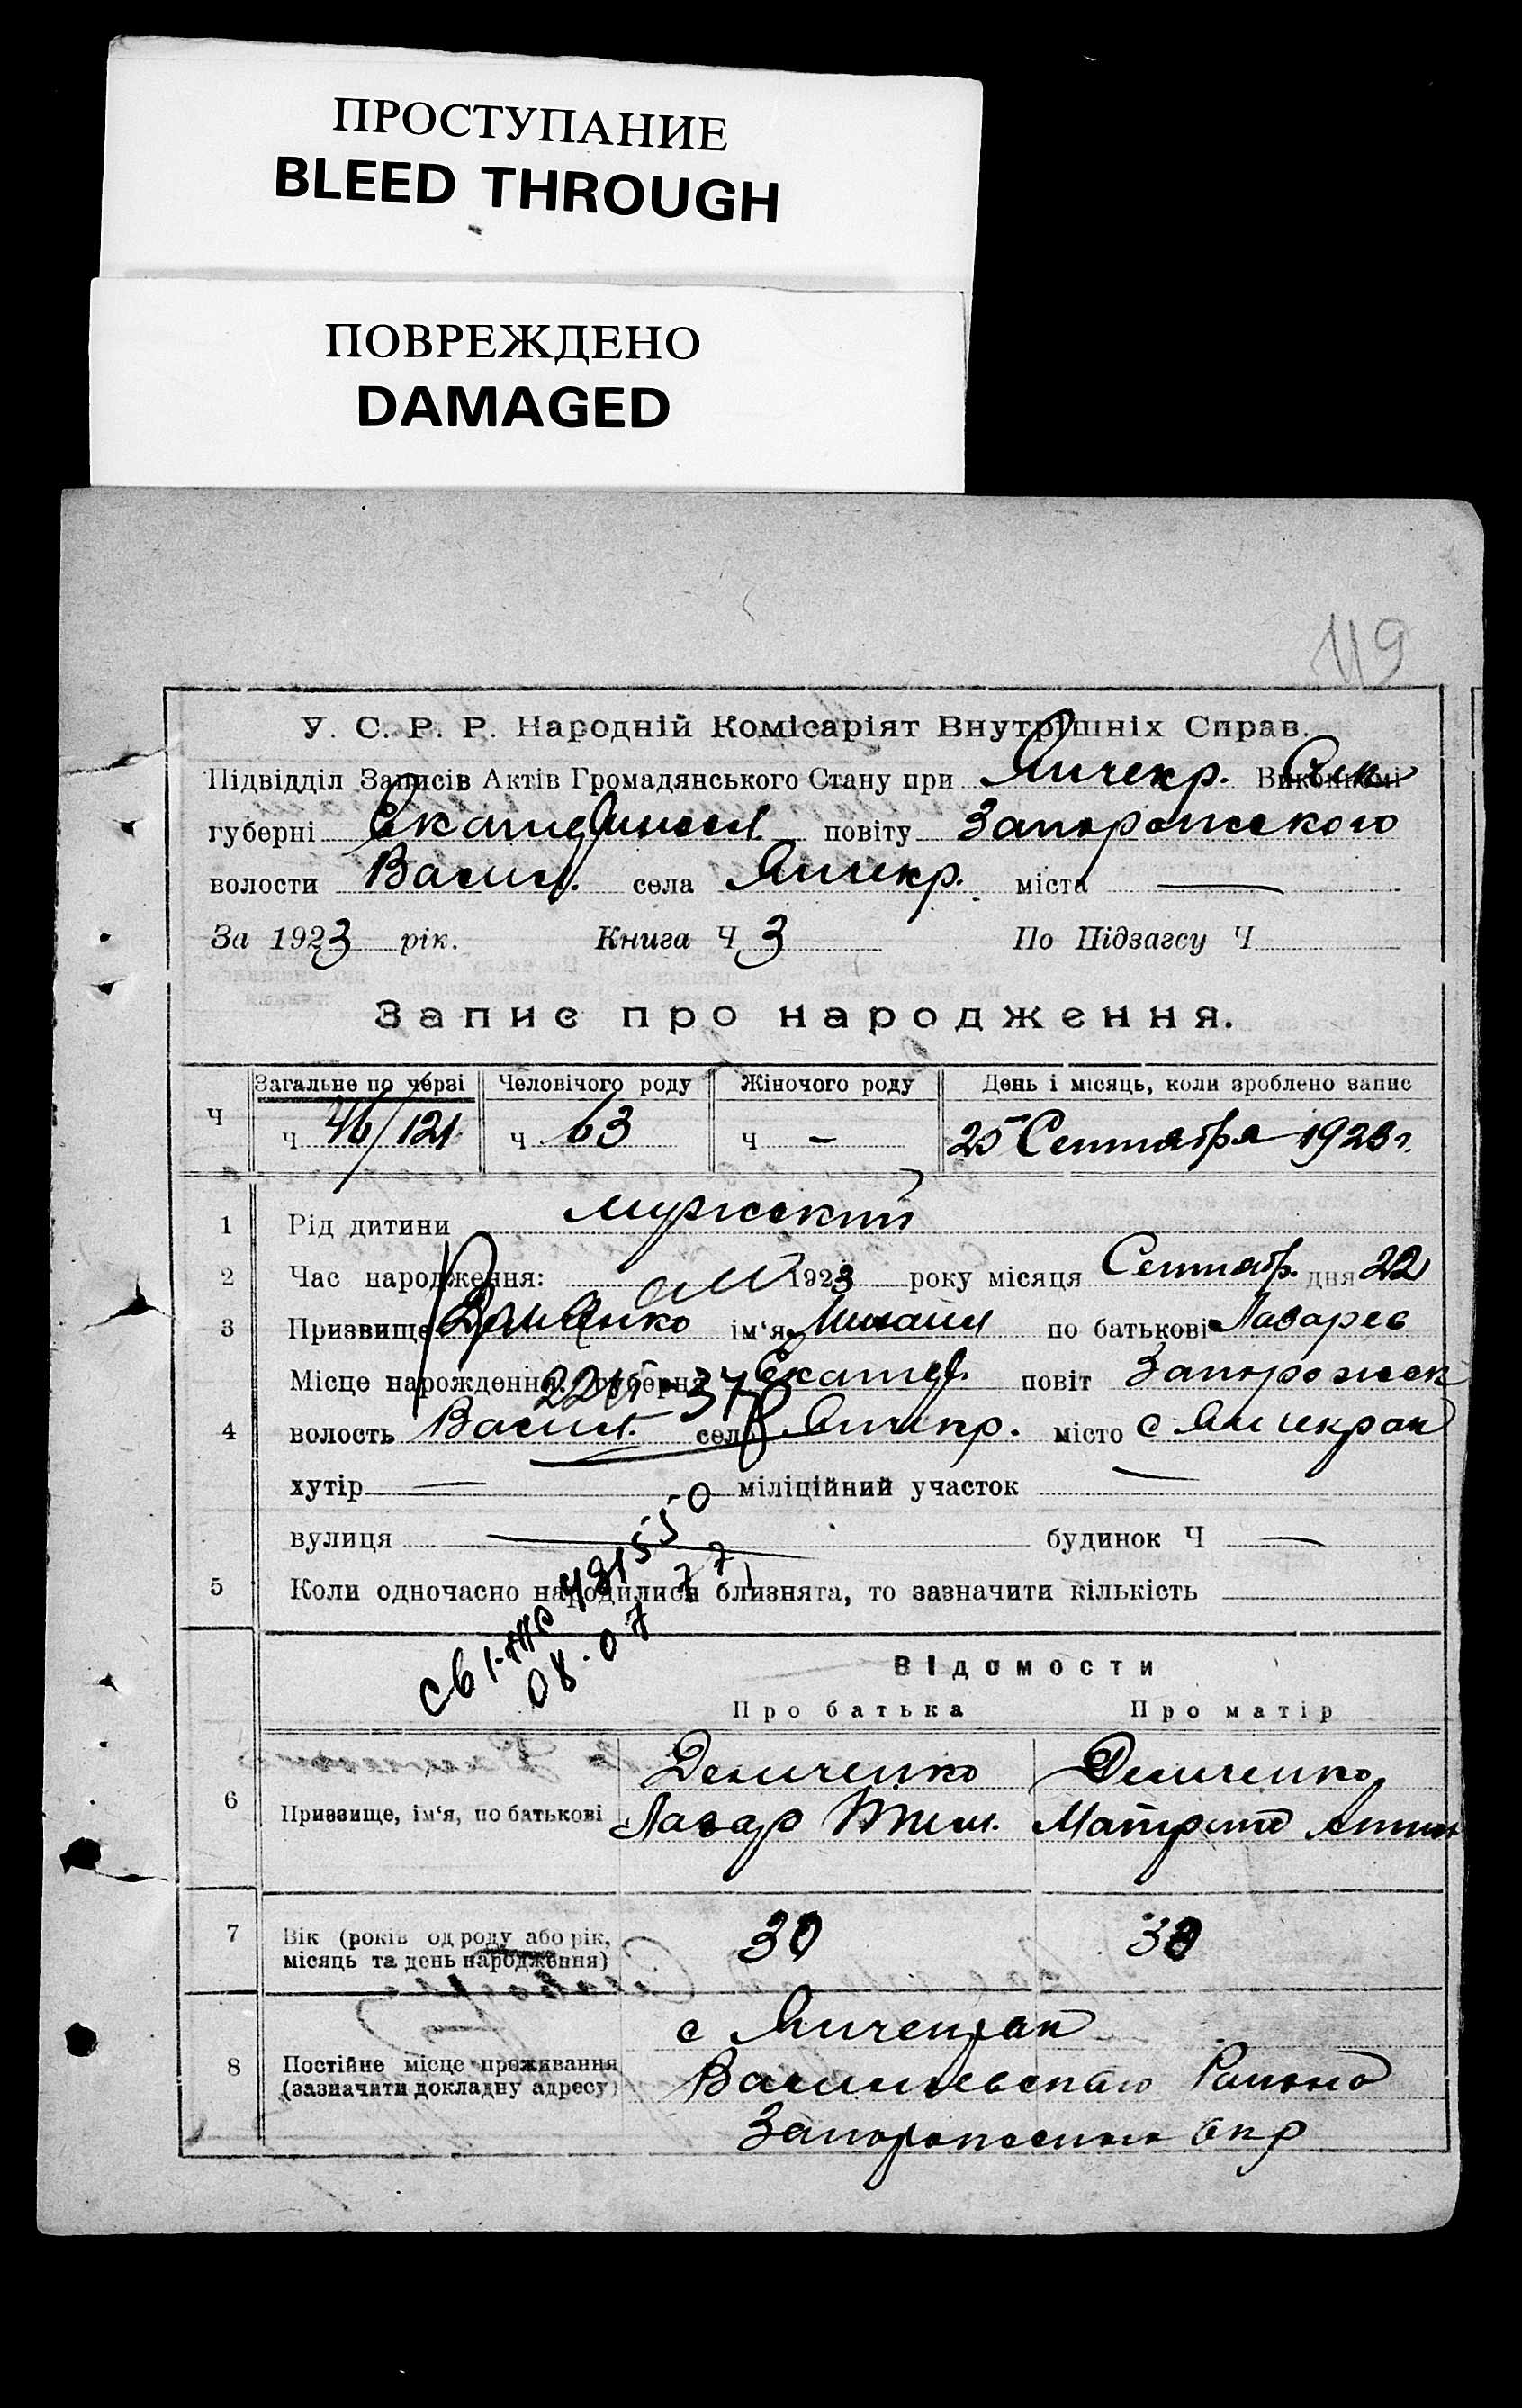 ПРОСТУПАНИЕ
BLEED THROUGH
ПОВРЕЖДЕНО
DAMAGED
119
У. С. Р. Р. Народній Комісаріят Внутрішніх Справ.
Підвідділ Записів Актів Громадянського Стану при Янчекр. Виконкомі
губерні Екатериносл. повіту Запорожского
волости Васил. села Янчекр. міста —
За 1923 рік. Книга Ч 3 По Підзагсу Ч
Запис про народження.
Загальне по черзі Человічого роду Жіночого роду День і місяць, коли зроблено запис
Ч ч 46/121 ч 63 ч — 25 Сентября 1923 г.
1 Рід дитини мужский
2 Час народження: 1923 року місяця Сентябр. дня 22
3 Призвище Демченко ім‘я Михаил по батькові Лазарев
Місце нарождення: губерня Екатер. повіт Запорожск
4 волость Васил. село Янчекр. місто с Янчекрак
хутір — міліційний участок —
вулиця — будинок Ч —
5 Коли одночасно народилися близнята, то зазначити кількість
481550
08.07.77
Відомости
Про батька Про матір
Демченко Демченко
6 Призвище, ім‘я, по батькові Лазар Тим. Матрина
7 Вік (років од роду або рік, місяць та день народження) 30 30
с Янчекрак
8 Постійне місце проживання (зазначити докладну адресу) Васильевского Района
Запорожского окр